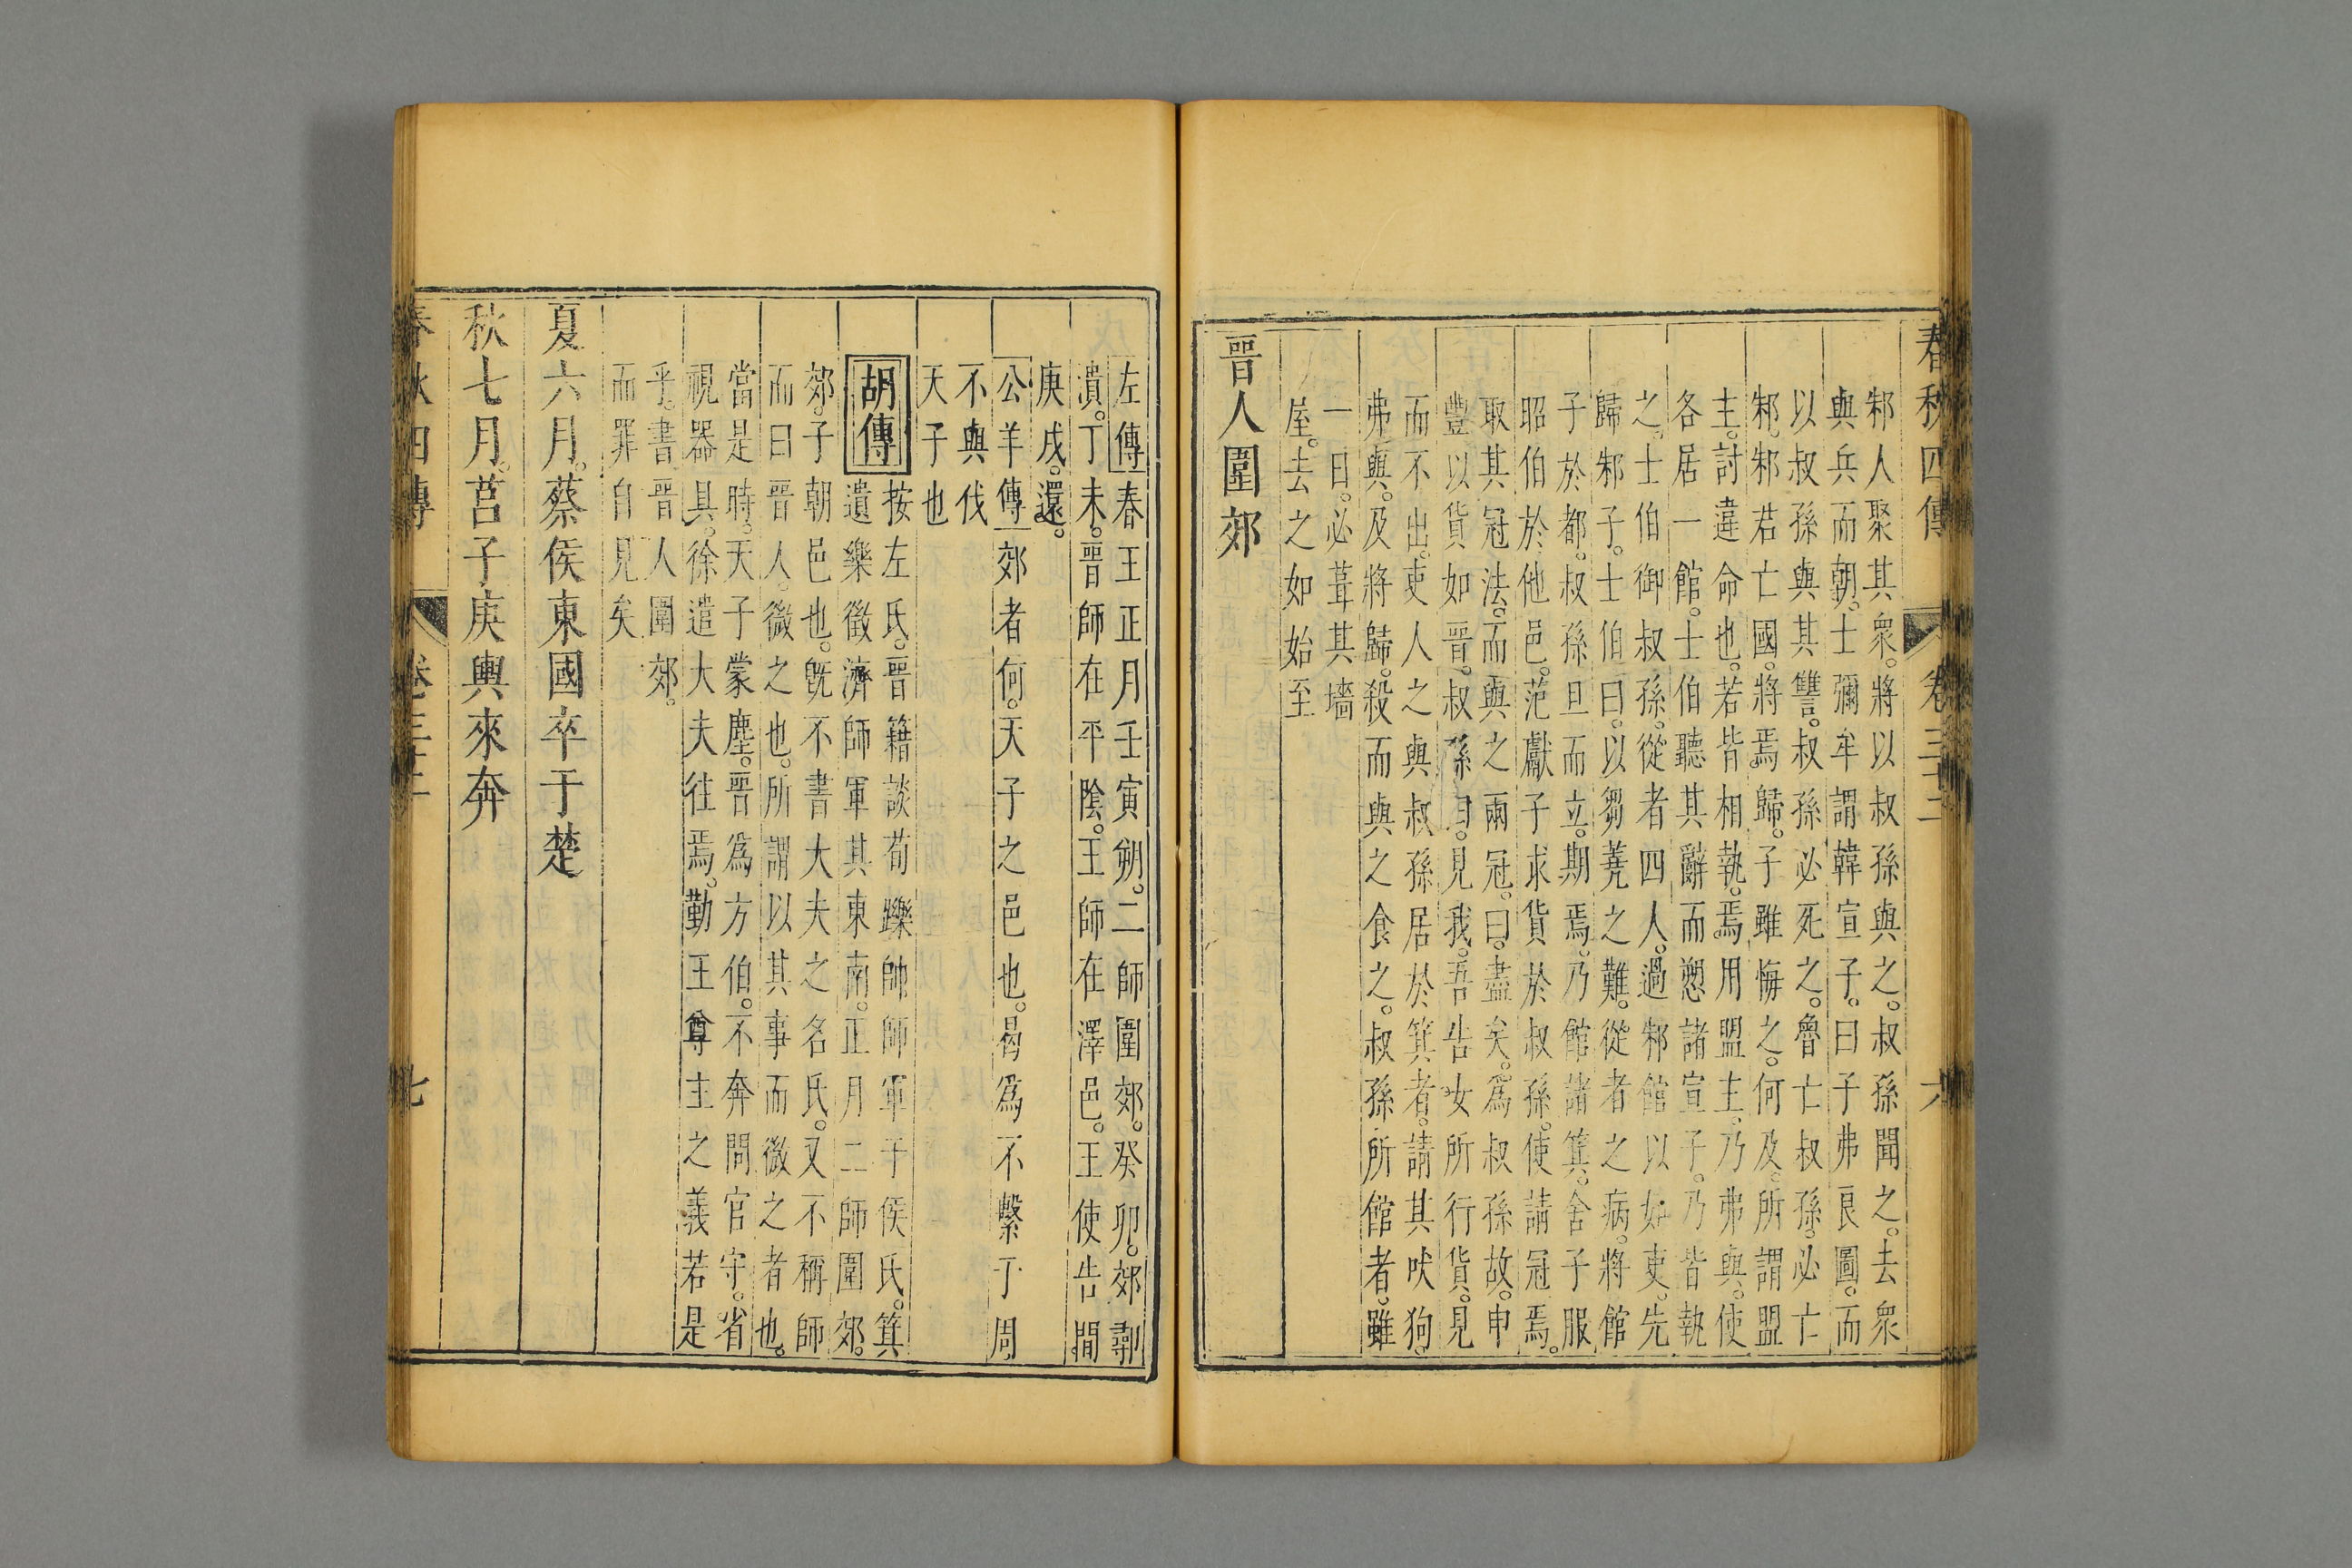 春秋四傳 卷三十二 六
邾人聚其衆。將以叔孫與之。叔孫聞之。去衆
與兵而朝。士彌牟謂韓宣子。曰子弗良圖。而
以叔孫與其讐。叔孫必死之。魯亡叔孫。必亡
邾。邾君亡國。將焉歸。子雖悔之。何及。所謂盟
主。討違命也。若皆相執。焉用盟主。乃弗與。使
各居一館。士伯聽其辭而愬諸宣子。乃皆執
之。士伯御叔孫。從者四人。過邾館以如吏。先
歸邾子。士伯曰。以芻蕘之難。從者之病。將館
子於都。叔孫旦而立。期焉。乃館諸箕。舍子服
昭伯於他邑。范獻子求貨於叔孫。使請冠焉。
取其冠法。而與之兩冠。曰。盡矣。爲叔孫故。申
豐以貨如晉。叔孫曰。見我。吾告女所行貨。見
而不出。吏人之與叔孫居於箕者。請其吠狗。
弗與。及將歸。殺而與之食之。叔孫所館者。雖
一日。必葺其墻
屋。去之如始至
晉人圍郊
左傳春王正月壬寅朔。二師圍郊。癸卯。郊鄩
潰。丁未。晉師在平陰。王師在澤邑。王使告間
庚戌。還。
公羊傳郊者何。天子之邑也。曷爲不繫于周
不與伐
天子也
胡傳
按左氏。晉籍談荀躒帥師軍于侯氏。箕
遺樂徵濟師軍其東南。正月二師圍郊。
郊。子朝邑也。旣不書大夫之名氏。又不稱師
而曰晉人。微之也。所謂以其事而微之者也。
當是時。天子蒙塵。晉爲方伯。不奔問官守。省
視器具。徐遣大夫往焉。勤王尊主之義若是
乎。書晉人圍郊。
而罪自見矣
夏六月。蔡侯東國卒于楚
秋七月。莒子庚輿來奔
春秋四傳 卷三十二 七